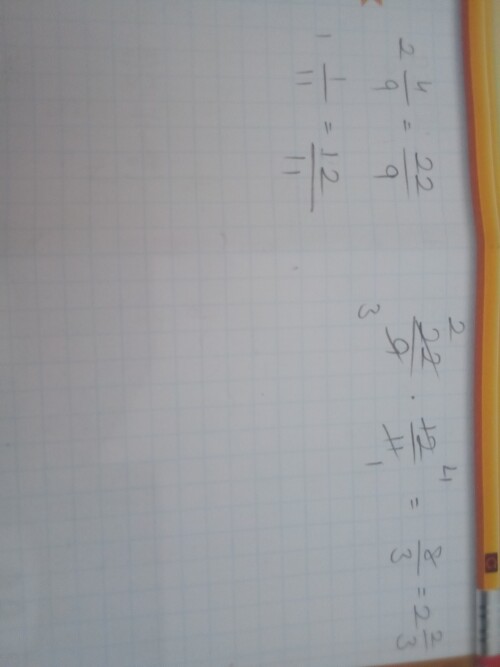 2 4/9 = 22/9
1 1/11 = 12/11
22/9 · 12/11 = 8/3 = 2 2/3
2 4
3 1